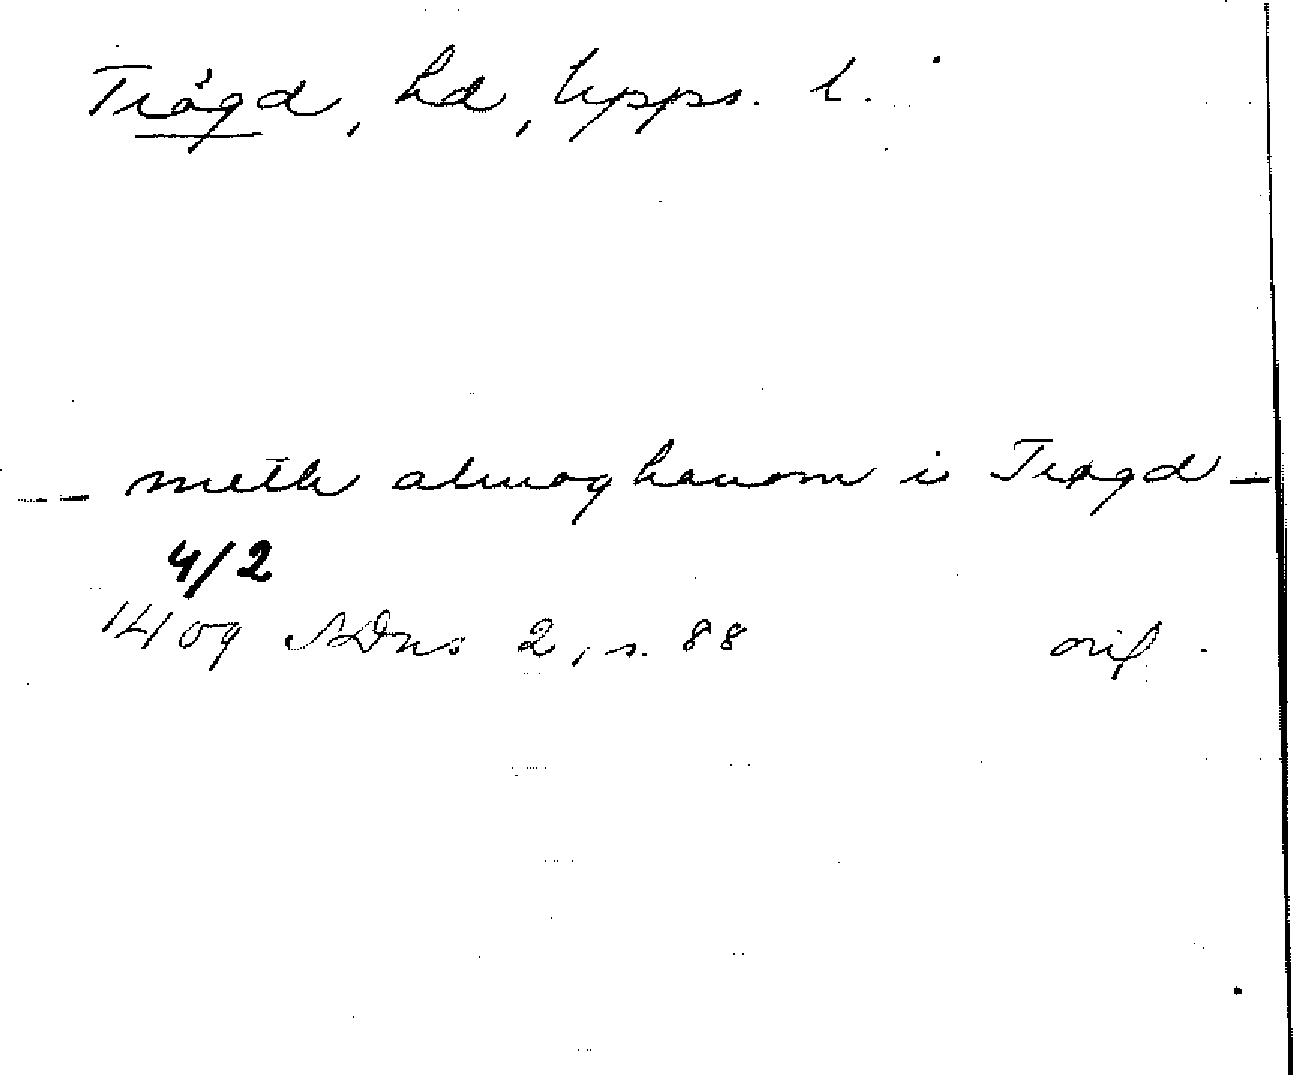 Trögd, hd, Upps. l.
-- meth almoghanom i Trøgd -
4/2
1409 SDns 2, s. 88 orig.